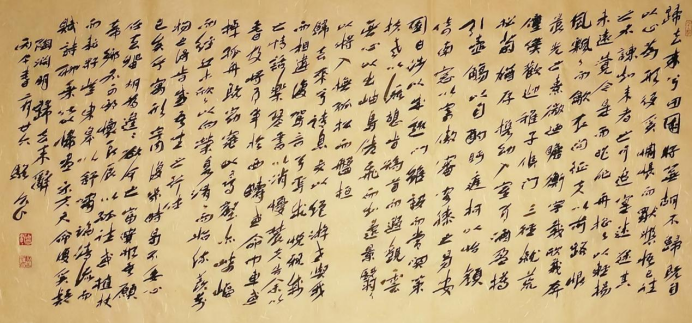 歸去來兮田園將蕪胡不歸既自
以心為形役奚惆悵而獨悲悟已往
之不諫知來者之可追實迷途其
未遠覺今是而昨非舟搖搖以輕颺
風飄飄而吹衣問征夫以前路恨
晨光之熹微乃瞻衡宇載欣載奔
僮僕歡迎稚子候門三徑就荒
松菊猶存攜幼入室有酒盈樽
引壺觴以自酌眄庭柯以怡顏
倚南窗以寄傲審容膝之易安
園日涉以成趣門雖設而常關策
扶老以流憩時矯首而遐觀雲
無心以出岫鳥倦飛而知還景翳翳
以將入撫孤松而盤桓
歸去來兮請息交以絕游世與我
而相違復駕言兮焉求悅親戚
之情話樂琴書以消憂農人告余以
春及將有事於西疇或命巾車或
棹孤舟既窈窕以尋壑亦崎嶇
而經丘木欣欣以向榮泉涓涓而始流善萬
物之得時感吾生之行休
已矣乎寓形宇內復幾時曷不委心
任去留胡為遑遑欲何之富貴非吾願
帝鄉不可期懷良辰以孤往或植杖
而耘耔登東皋以舒嘯臨清流而
賦詩聊乘化以歸盡樂夫天命復奚疑
陶淵明歸去來辭